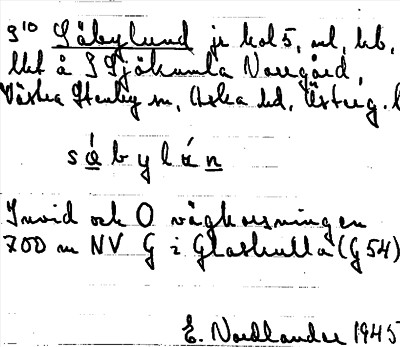 910 Säbylund je kol 5, ml, hb,
lht å S Sjökumla Norrgård,
Västra Stenby sn, Aska hd, Österg. l
säbylún
Invid och O vägkorsningen
700 m NV G i Glaskulla (G54)
E. Nordlander 1945